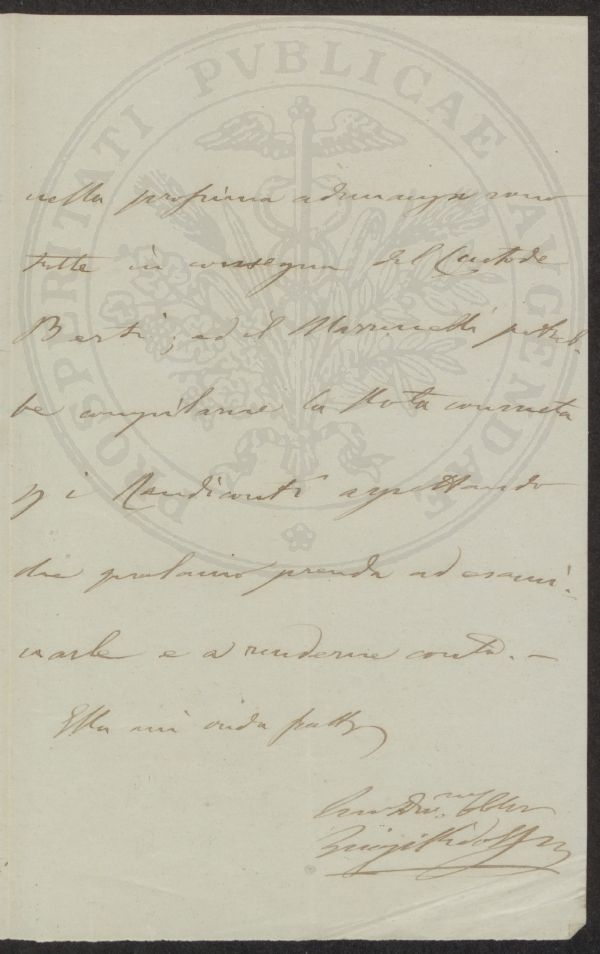 PROSPERITATI PVBLICAE AVGENDAE
nella prossima adunanza sono
tutte in consegna del Custode
Berti; ed il Marsinelli potreb-
be compilarne la Nota consueta
pei Rendiconti aspettando
che qualcuno prenda ad esami-
narle e a renderne conto. —
Ella mi creda frattanto
Suo Dev.mo
Luigi Ridolfi